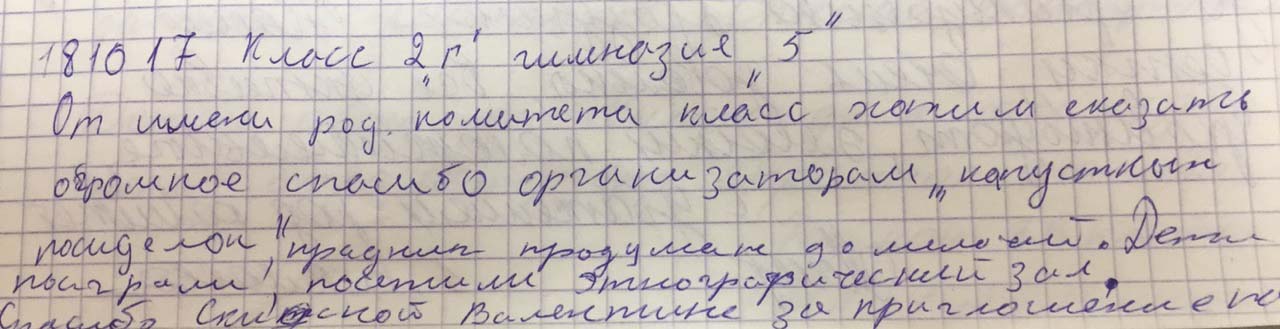 181017 Класс 2"г" гимназия "5"
От имени род. комитета класс хотим сказать
огромное спасибо организаторам "капустных
посиделок", праднил продуман до мелочей. Дети
поиграли, посетили этнографический зал.
Спасибо Валентине за приглошение